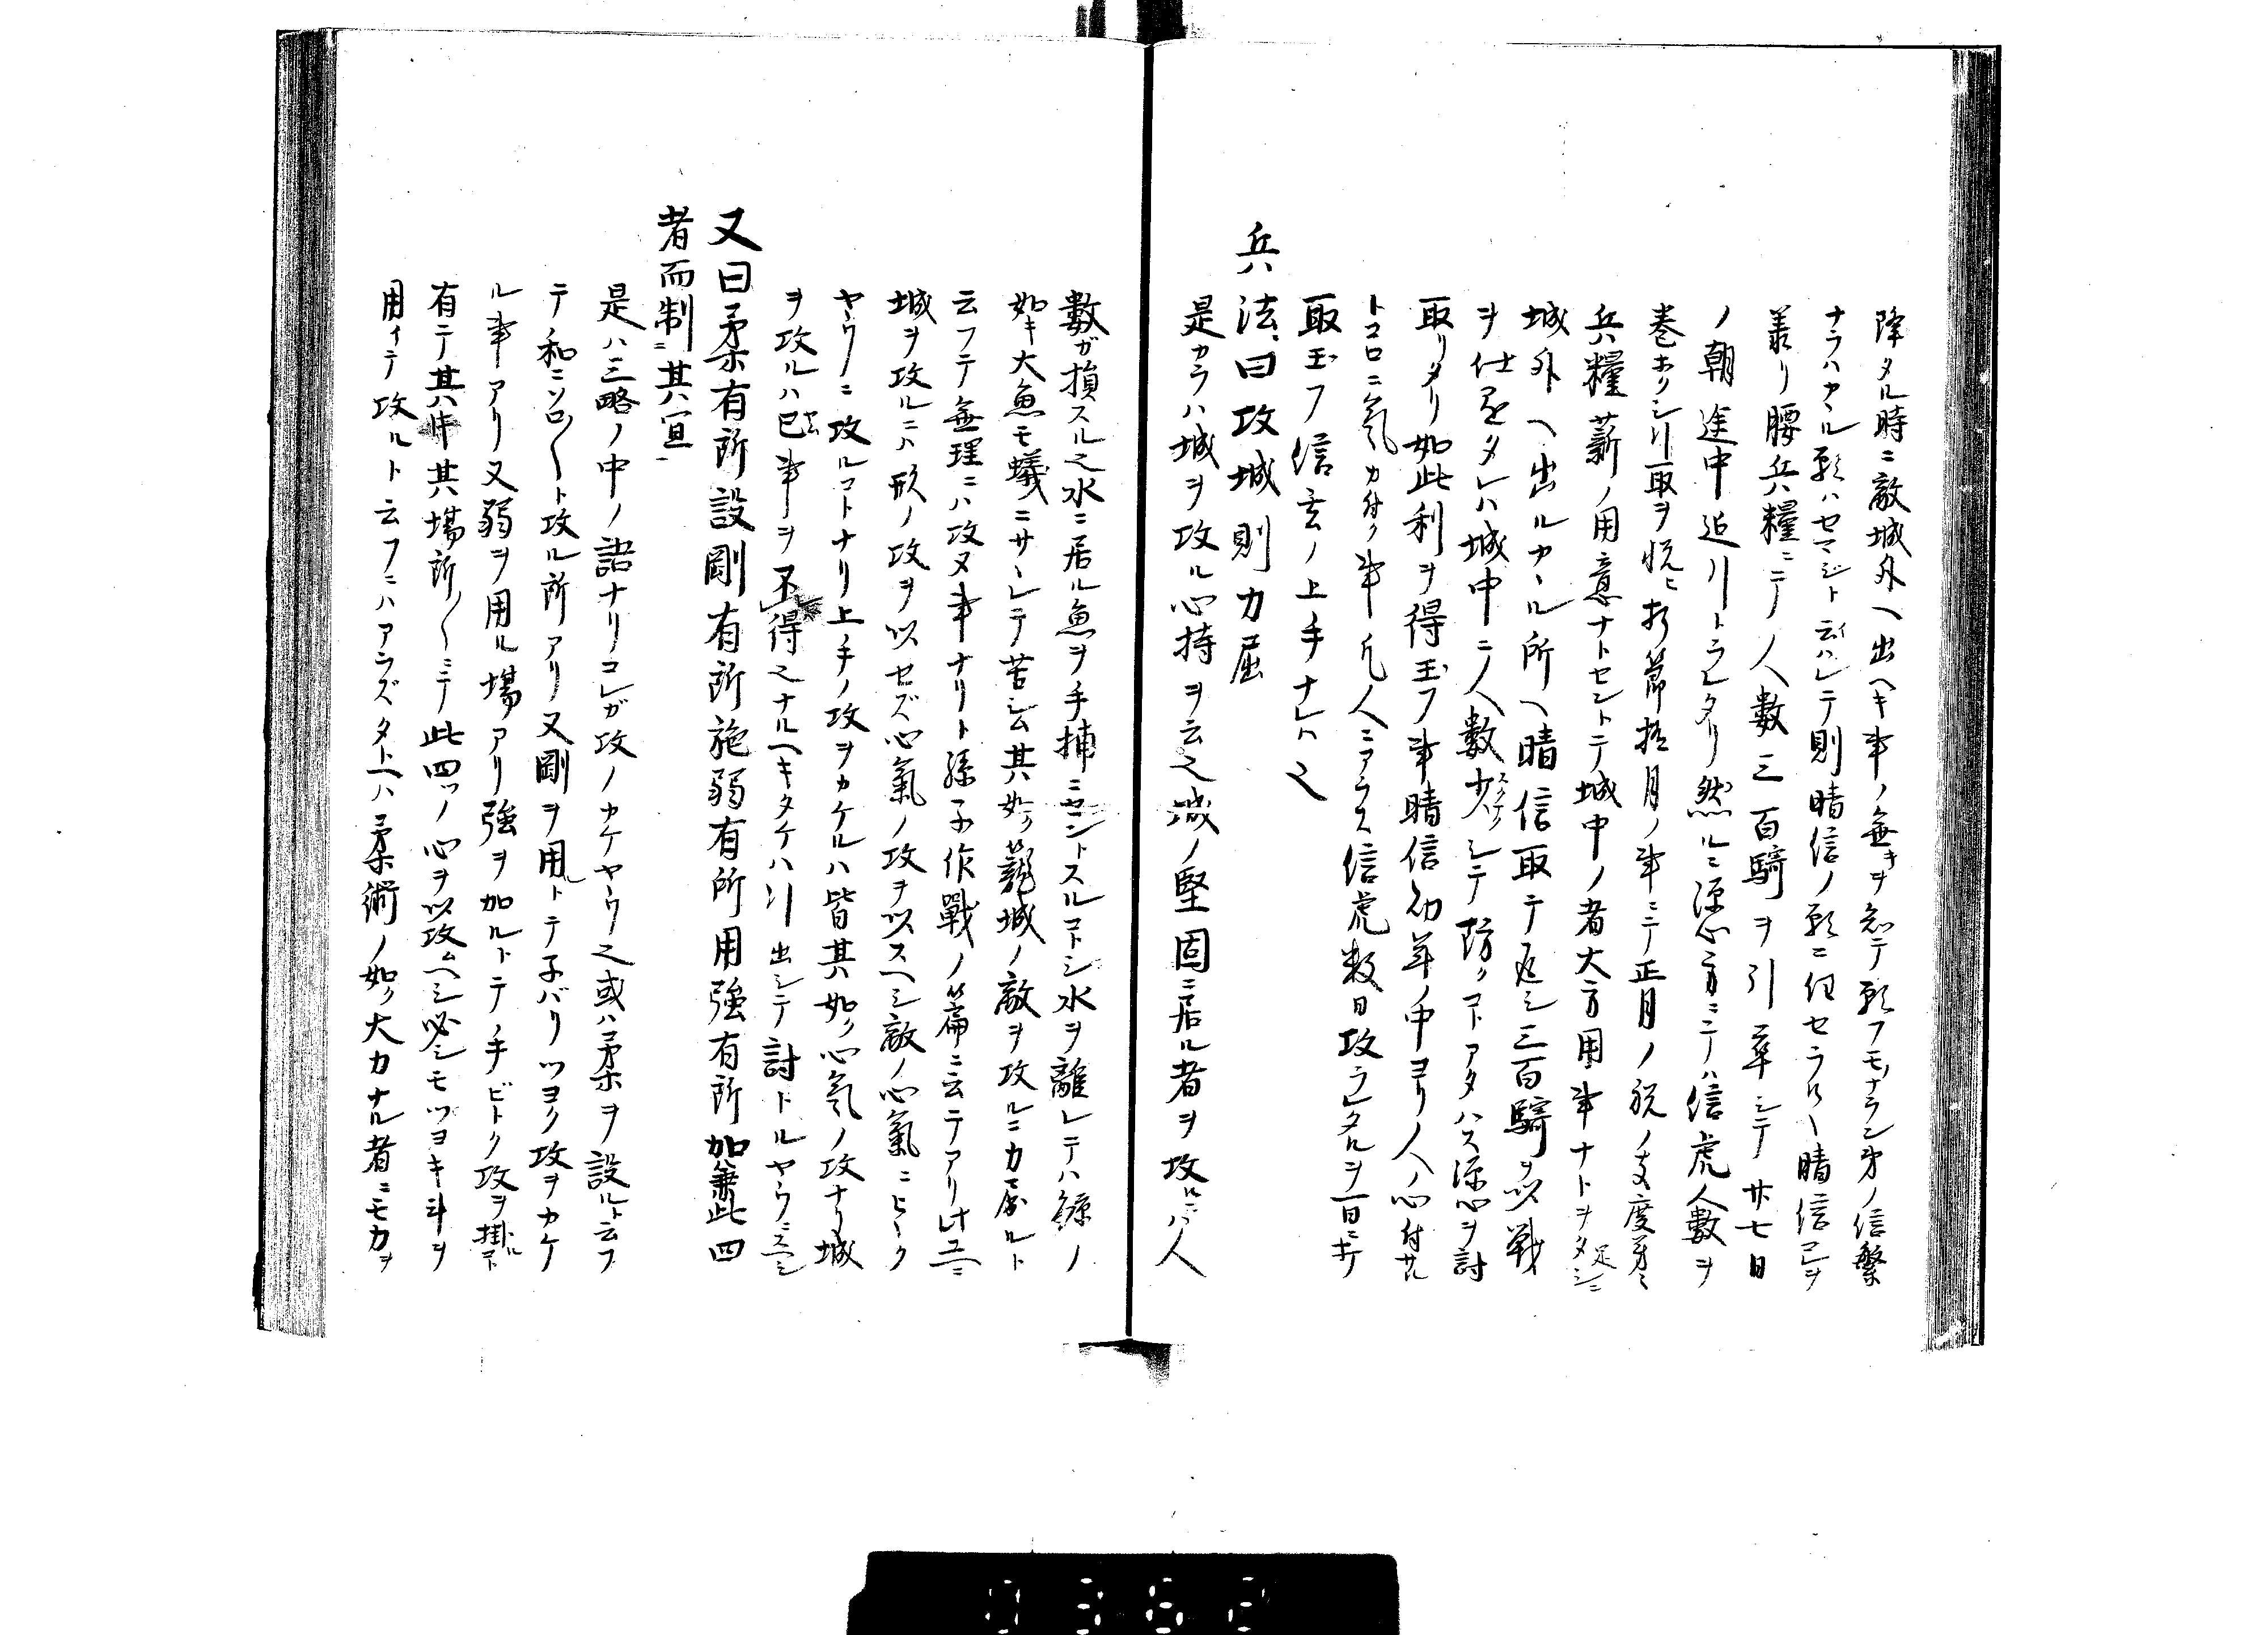 降タル時ニ敵城外ヘ出ヘキ事ノ無キヲ知テ願フモノナラン弟ノ信繁
ナラハカヽル願ハセマジト云ハレテ則晴信ノ願ニ任セラル晴信己ヲ
兼リ腰兵糧ニテ人數三百騎ヲ引率シテ廿七日
ノ朝途中迄引トラレタリ然ルニ源心方ニテハ信虎人數ヲ
巻ホクシ引取ヲ悦ヒ折節極月ノ事ニテ正月ノ祝ノ支度并ニ
兵糧薪ノ用意ナトセントテ城中ノ者大方用事ナトヲタシニ
城外ヘ出ルカヽル所ヘ晴信取テ返シ三百騎ヲ以戰
ヲ仕タレハ城中ニ人數少クシテ防クコトアタハス源心ヲ討
取リタリ如此利ヲ得玉フ事晴信幼年ノ中ヨリ人ノ心付サル
トコロニ氣カ付ク事凡人ニアラス信虎数日攻ラレタルヲ一日ニ
取玉フ信玄ノ上手ナレハ也
兵法曰攻城則力屈
是カラハ城ヲ攻ル心持ヲ云之城ノ堅固ニ居ル者ヲ攻ルニハ人
數ガ損スル之水ニ居ル魚ヲ手捕ニセントスルコトシ水ヲ離レテハ鯨ノ
如キ大魚モ蟻ニサヽレテ苦シム其如ク籠城ノ敵ヲ攻ルニ力屈ルト
云フテ無理ニハ攻ヌ事ナリト孫子作戰ノ篇ニ云テアリ此ユヘニ
城ヲ攻ルニハ形ノ攻ヲ以セズ心氣ノ攻ヲ以スヘシ敵ノ心氣ニヒヽク
ヤウニ攻ルコトナリ上手ノ攻ヲカケルハ皆其如ク心氣ノ攻ナリ城
ヲ攻ルハ已事ヲ不得之ナルヘキタケハ引出シテ討トルヤウニスヘシ
又曰柔有所設剛有所施弱有所用強有所加兼此四
者而制ニ其宜
是ハ三略ノ中ノ語ナリコレガ攻ノカケヤウ之或ハ柔ヲ設ルト云フ
テ和ニソロ〱ト攻ル所アリ又剛ヲ用ルトテ子バリツヨク攻ヲカケ
ル事アリ又弱ヲ用ル場アリ強ヲ加ルトテ手ビトク攻ヲ掛ルコト
有テ其時其場所〱ニテ此四ツノ心ヲ以攻ムヘシ必シモツヨキ斗ヲ
用イテ攻ルト云フニハアラズタトヘハ柔術ノ如ク大力ナル者ニモ力ヲ